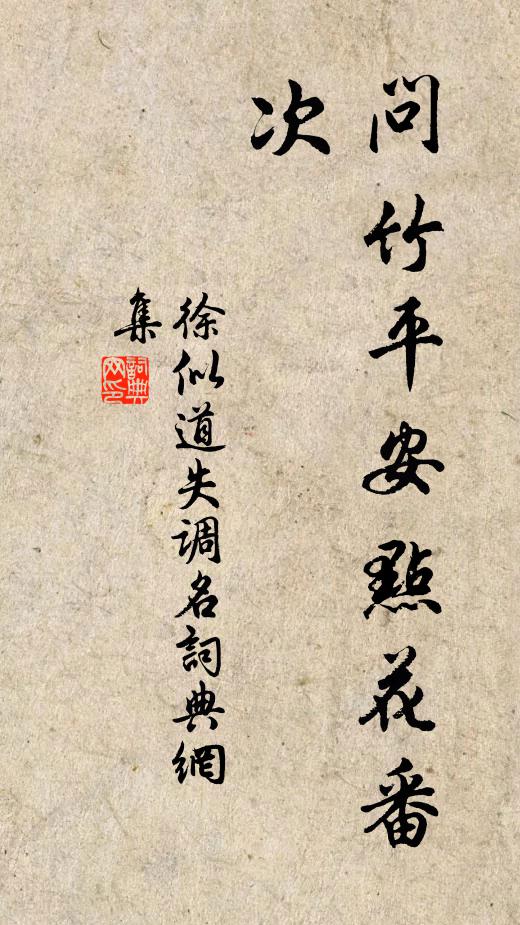 問竹平安點花番
次
徐似道失調名詞典網
集
詞典
网印